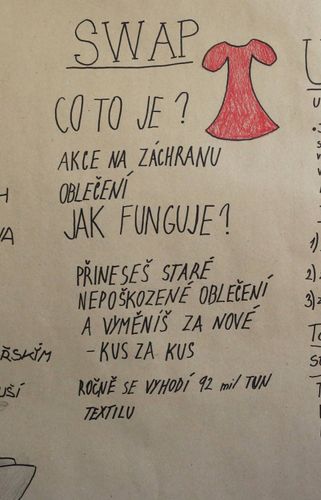 SWAP
CO TO JE?
AKCE NA ZÁCHRANU
OBLEČENÍ
JAK FUNGUJE?
PŘINESEŠ STARÉ
NEPOŠKOZENÉ OBLEČENÍ
A VYMĚNÍŠ ZA NOVÉ
- KUS ZA KUS
ROČNĚ SE VYHODÍ 92 mil TUN
TEXTILU